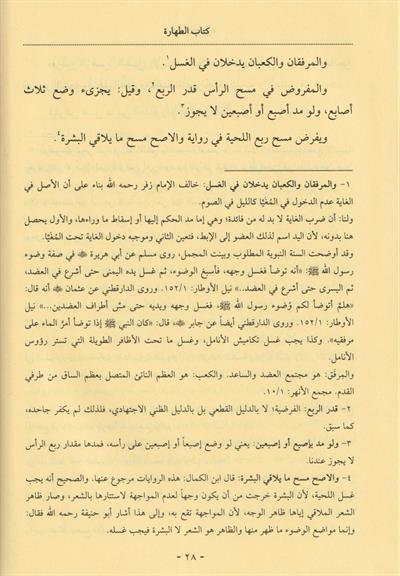 كتاب الطهارة
والمرفقان والكعبان يدخلان في الغسل١.
والمفروض في مسح الرأس قدر الربع٢، وقيل: يجزىء وضع ثلاث
أصابع، ولو مد أصبع أو أصبعين لا يجوز٣.
ويفرض مسح ربع اللحية في رواية والاصح مسح ما يلاقي البشرة٤.
١- والمرفقان والكعبان يدخلان في الغسل: خالف الإمام زفر رحمه الله بناء على أن الأصل في
الغاية عدم الدخول في المُغيَّا كالليل في الصوم.
ولنا: أن ضرب الغاية لا بد له من فائدة؛ وهي إما مد الحكم إليها أو إسقاط ما وراءها، والأول يحصل
هنا بدونه، لأن اليد اسم لذلك العضو إلى الإبط، فتعين الثاني وموجبه دخول الغاية تحت المُغيَّا.
وقد أوضحت السنة النبوية المطلوب وبينت المجمل، روى مسلم عن أبي هريرة ﷺ في صفة وضوء
رسول الله ﷺ: «أنه توضأ فغسل وجهه، فأسبغ الوضوء، ثم غسل يده اليمنى حتى أشرع في العضد،
ثم اليسرى حتى أشرع في العضد..» نيل الأوطار: ١٥٢/١. وروى الدارقطني عن عثمان أنه قال:
«هلمّ أتوضأ لكم وُضوء رسول الله ﷺ، فغسل وجهه ويديه حتى مسّ أطراف العضدين...» نيل
الأوطار: ١٥٢/١. وروى الدارقطني أيضاً عن جابر، قال: «كان النبي ﷺ إذا توضأ أمرَّ الماء على
مرفقيه». وكذا يجب غسل تكاميش الأنامل، وغسل ما تحت الأظافر الطويلة التي تستر رؤوس
الأنامل.
والمِرفَق: هو مجتمع العضد والساعد. والكعب: هو العظم الناتئ المتصل بعظم الساق من طرفي
القدم. مجمع الأنهر: ١٠/١.
٢- قدر الربع: الفرضية؛ لا بالدليل القطعي بل بالدليل الظني الاجتهادي، فلذلك لم يكفر جاحده،
كما سبق.
٣- ولو مد بإصبع أو إصبعين: يعني لو وضع إصبعاً أو إصبعين على رأسه، فمدها مقدار ربع الرأس
لا يجوز عندنا.
٤- والاصح مسح ما يلاقي البشرة: قال ابن الكمال: هذه الروايات مرجوع عنها. والصحيح أنه يجب
غسل اللحية، لأن البشرة خرجت من أن يكون وجهاً لعدم المواجهة لاستتارها بالشعر، وصار ظاهر
الشعر الملاقي إياها ظاهر الوجه، لأن المواجهة تقع به، وإلى هذا أشار أبو حنيفة رحمه الله فقال:
وإنما مواضع الوضوء ما ظهر منها والظاهر هو الشعر لا البشرة فيجب غسله.
- ٢٨ -